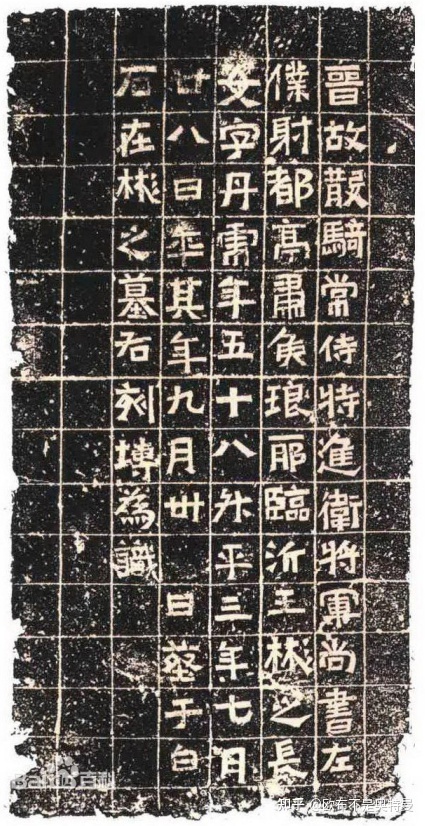 晉故散騎常侍特進衛將軍尚書左
僕射都亭肅侯琅耶臨沂王彬之長
女字丹虎年五十八升平三年七月
廿八日卒其年九月卅日葬于白
石在彬之墓右刻塼為識
百科
知乎 @欧布不是奥特曼